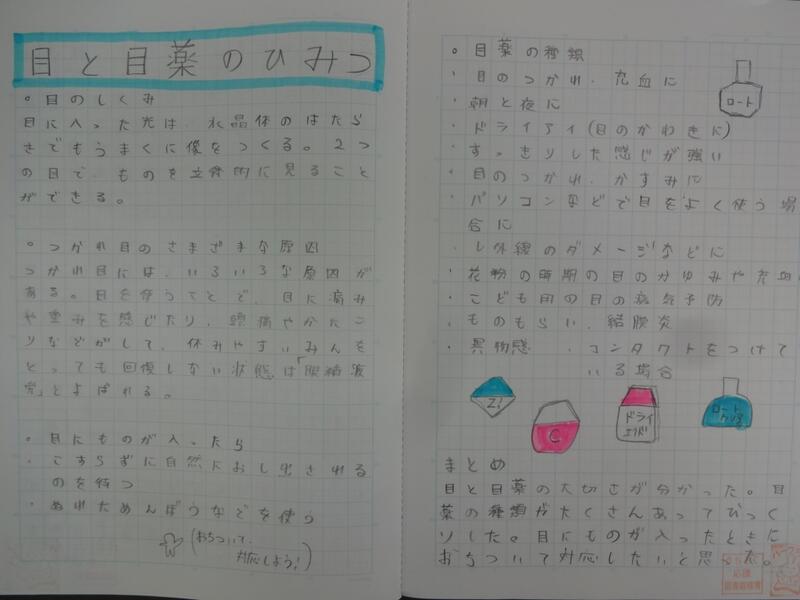 目と目薬のひみつ
。目のしくみ
目に入った光は、水晶体のはたら
きでもうまくに像をつくる。2つ
の目で、ものを立体的に見ること
ができる。
。つかれ目のさまざまな原因
つかれ目には、いろいろな原因が
ある。目を使うことで、目に痛み
や重みを感じたり、頭痛やかたこ
りなどがして、休みやすいみんを
とっても回復しない状態は「眼精疲
労」とよばれる。
。目にものが入ったら
・こすらずに自然におし出される
のを待つ
・ぬれためんぼうなどを使う
(おちついて、
対応しよう!)
。目薬の種類
・目のつかれ、充血に
・朝と夜に
・ドライアイ(目のかわきに)
・すっきりした感じが強い
・目のつかれ、かすみに
・パソコンなどで目をよく使う場
合に
・し外線のダメージなどに
・花粉の時期の目のかゆみや充血
・こども用の目の病気予防
・ものもらい、結膜炎
・異物感 、コンタクトをつけて
いる場合
ロート
Z!
C
ドライ
ロート
まとめ
目と目薬の大切さが分かった。目
薬の種類がたくさんあってびっく
りした。目にものが入ったときに
おちついて対応したいと思った。